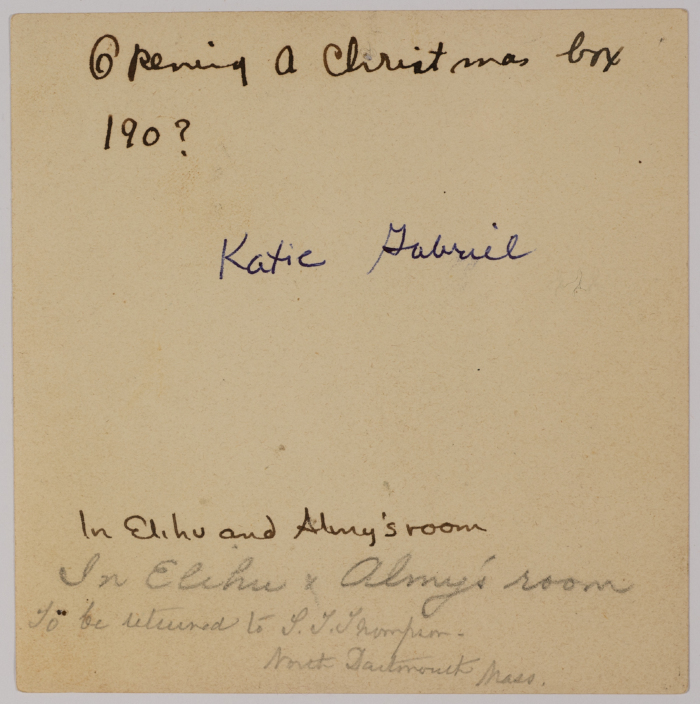 Opening a Christmas box
190?
Katie Gabriel
In Elihu and Almy's room
In Elihu & Almy's room
To be returned to S. T. Thompson-
North Dartmouth Mass.